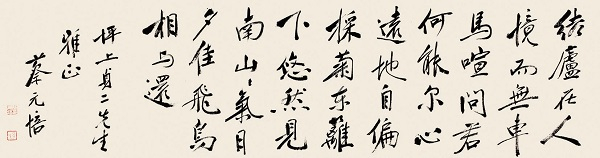 結廬在人
境而無車
馬喧問君
何能尔心
遠地自偏
採菊东籬
下悠然見
南山〻氣日
夕佳飛鳥
相与還
坪上貞二先生
雅正
蔡元培